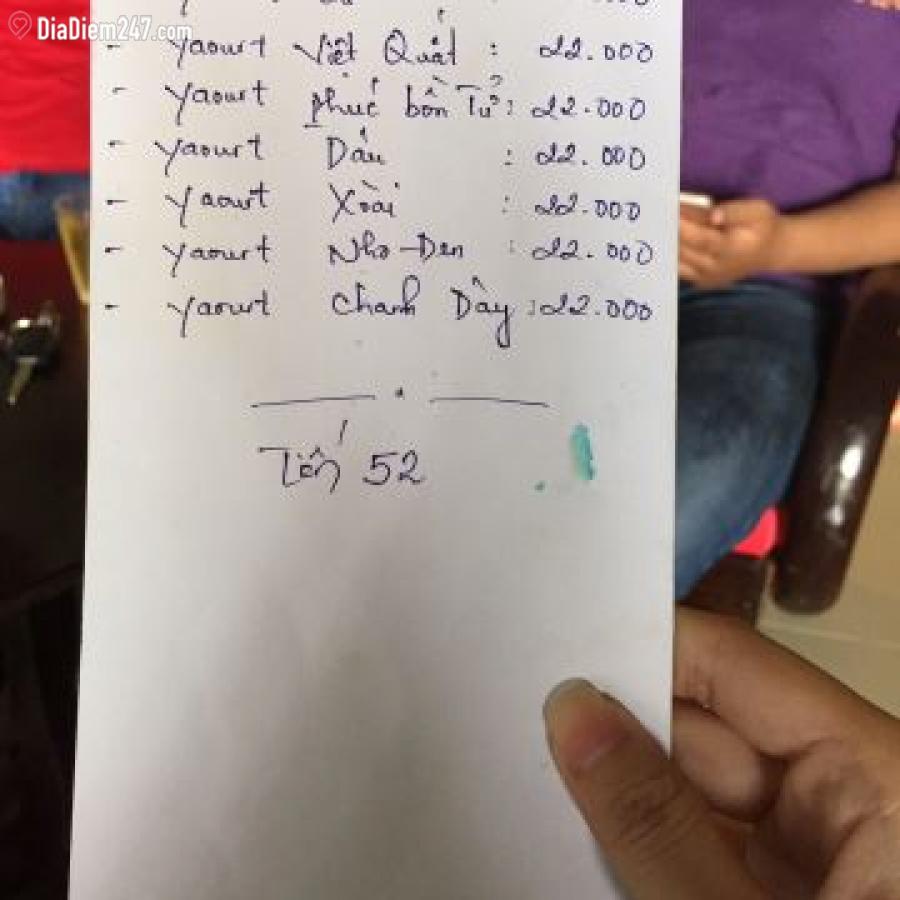 DiaDiem247.com
- Yaourt Việt Quất : 22.000
- Yaourt phúc bồn Tử : 22.000
- Yaourt Dâu : 22.000
- Yaourt Xoài : 22.000
- Yaourt Nho-Đen : 22.000
- Yaourt Chanh Dây : 22.000
Tiến 52